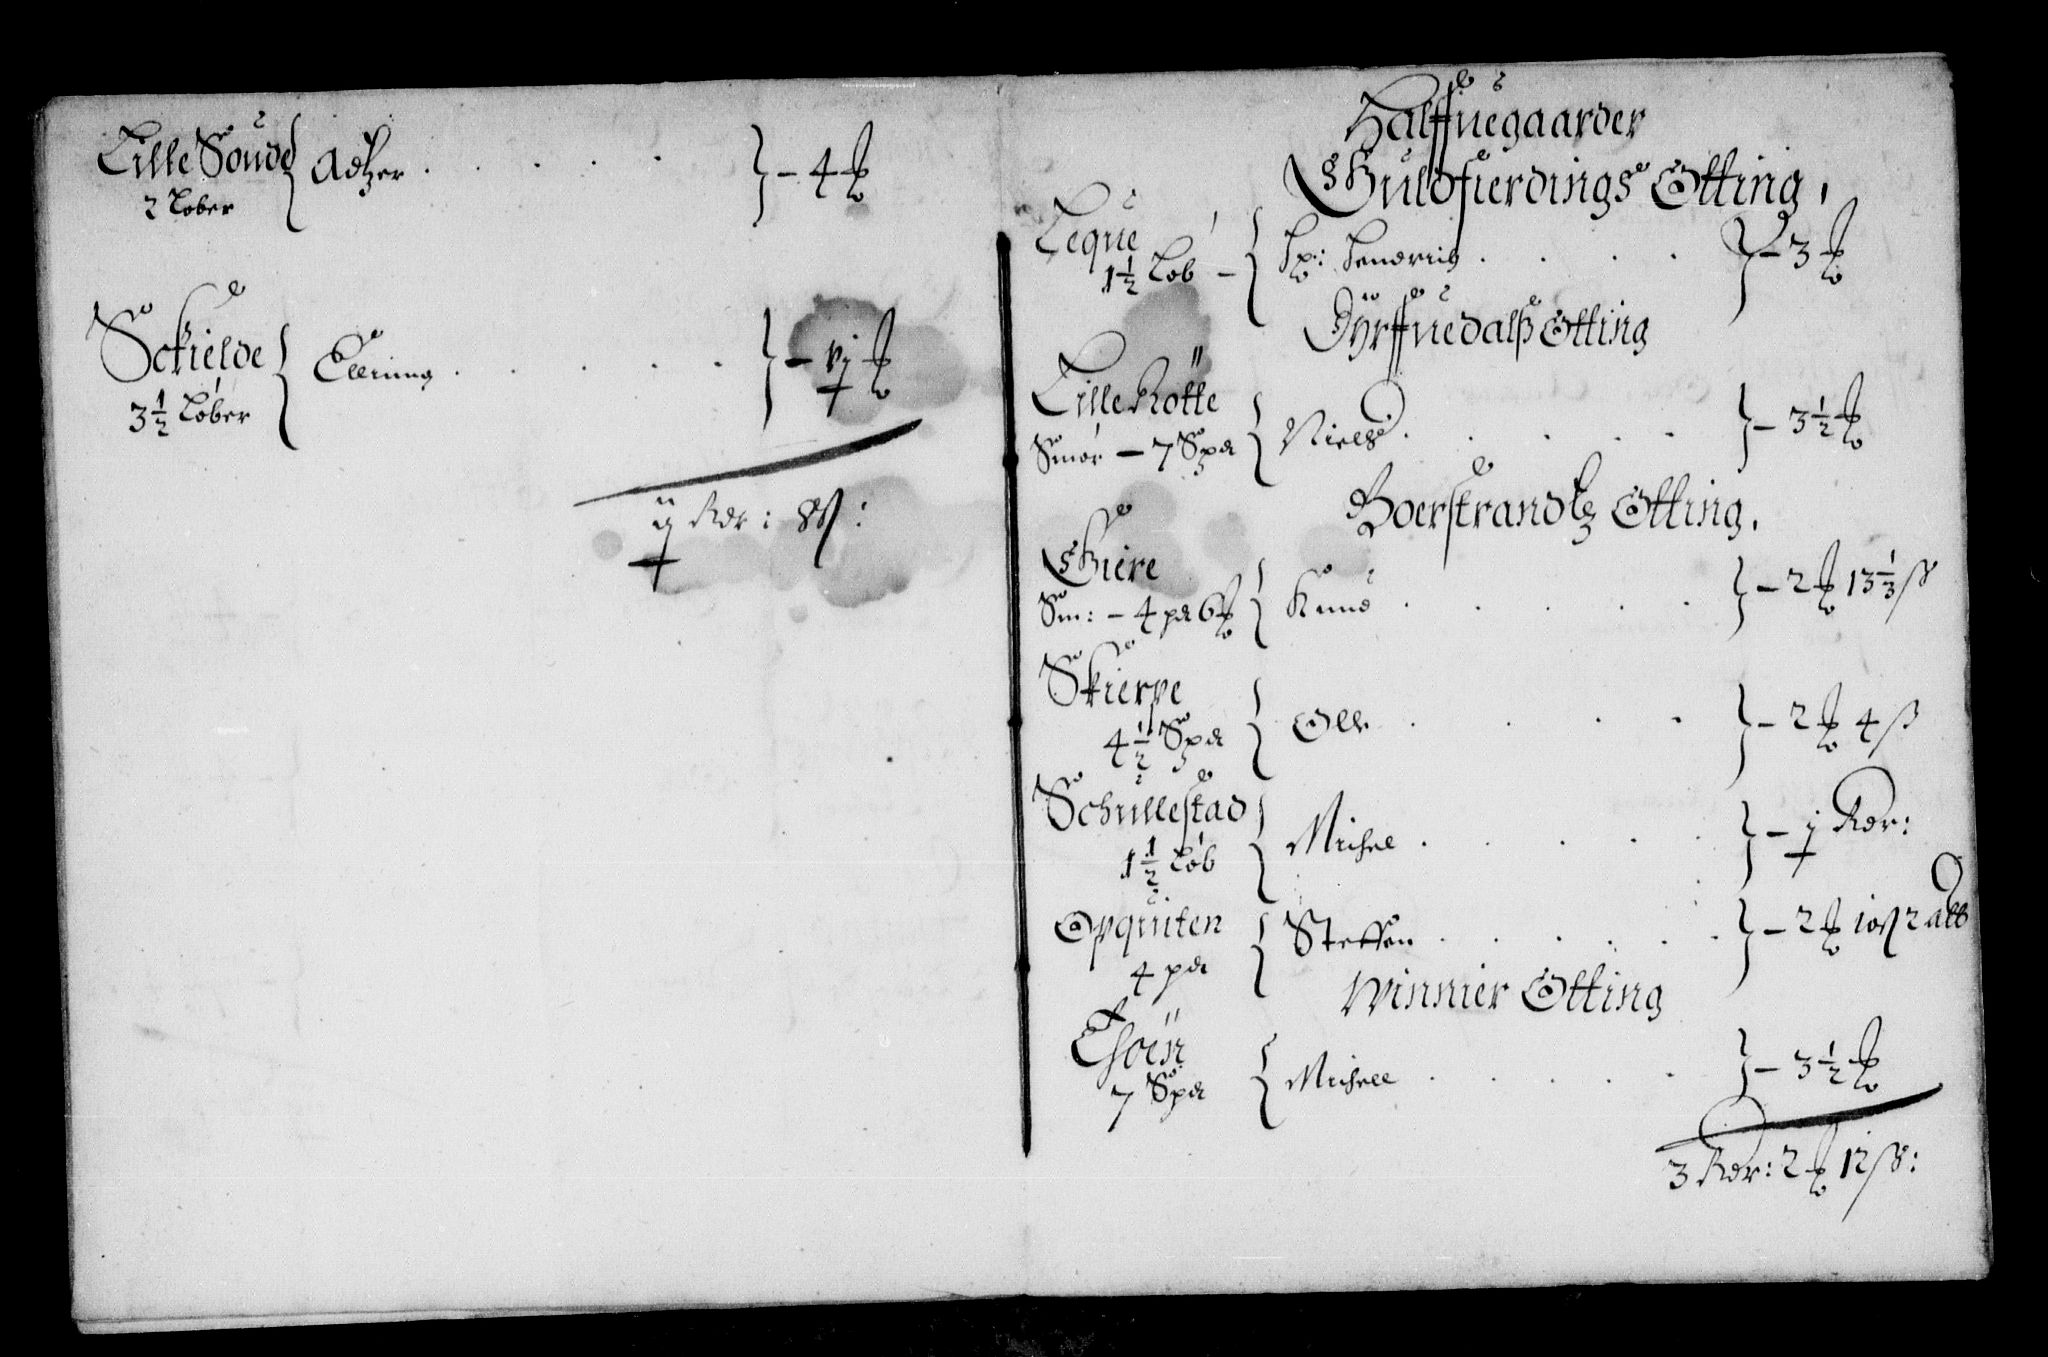 Lille Soude { Adtzer . . . . } - 4 ℔
2 Løber
Sckielde { Ellling . . . . . } - vj ℔
3½ Løber
ij Rdr: 8 ß:
Halffuegaarder
Guldfierdings Otting,
Leque { Lp: Lendruig . . . . } - 3 ℔
1½ Løb -
Dÿrffuedalß Otting
Lille Røtte { Niels . . . . } - 3½ ℔
Smør - 7 Spd
Boerstrandtz Otting,
Giere { Knud . . . . } - 2 ℔ 13⅓ ß
Sm: - 4 pd 6 ℔
Skierpe { Olle . . . . } - 2 ℔ 4 ß
4½ Spd
Schullestad { Michel . . . . } - j Rdr:
1½ Løb
Opquiten { Steffen . . . . . } - 2 ℔ 10 ß 2 alb
4 pd
Winnier Otting
Thoën { Michell . . . . . } - 3½ ℔
7 Spd
3 Rdr: 2 ℔ 12 ß: